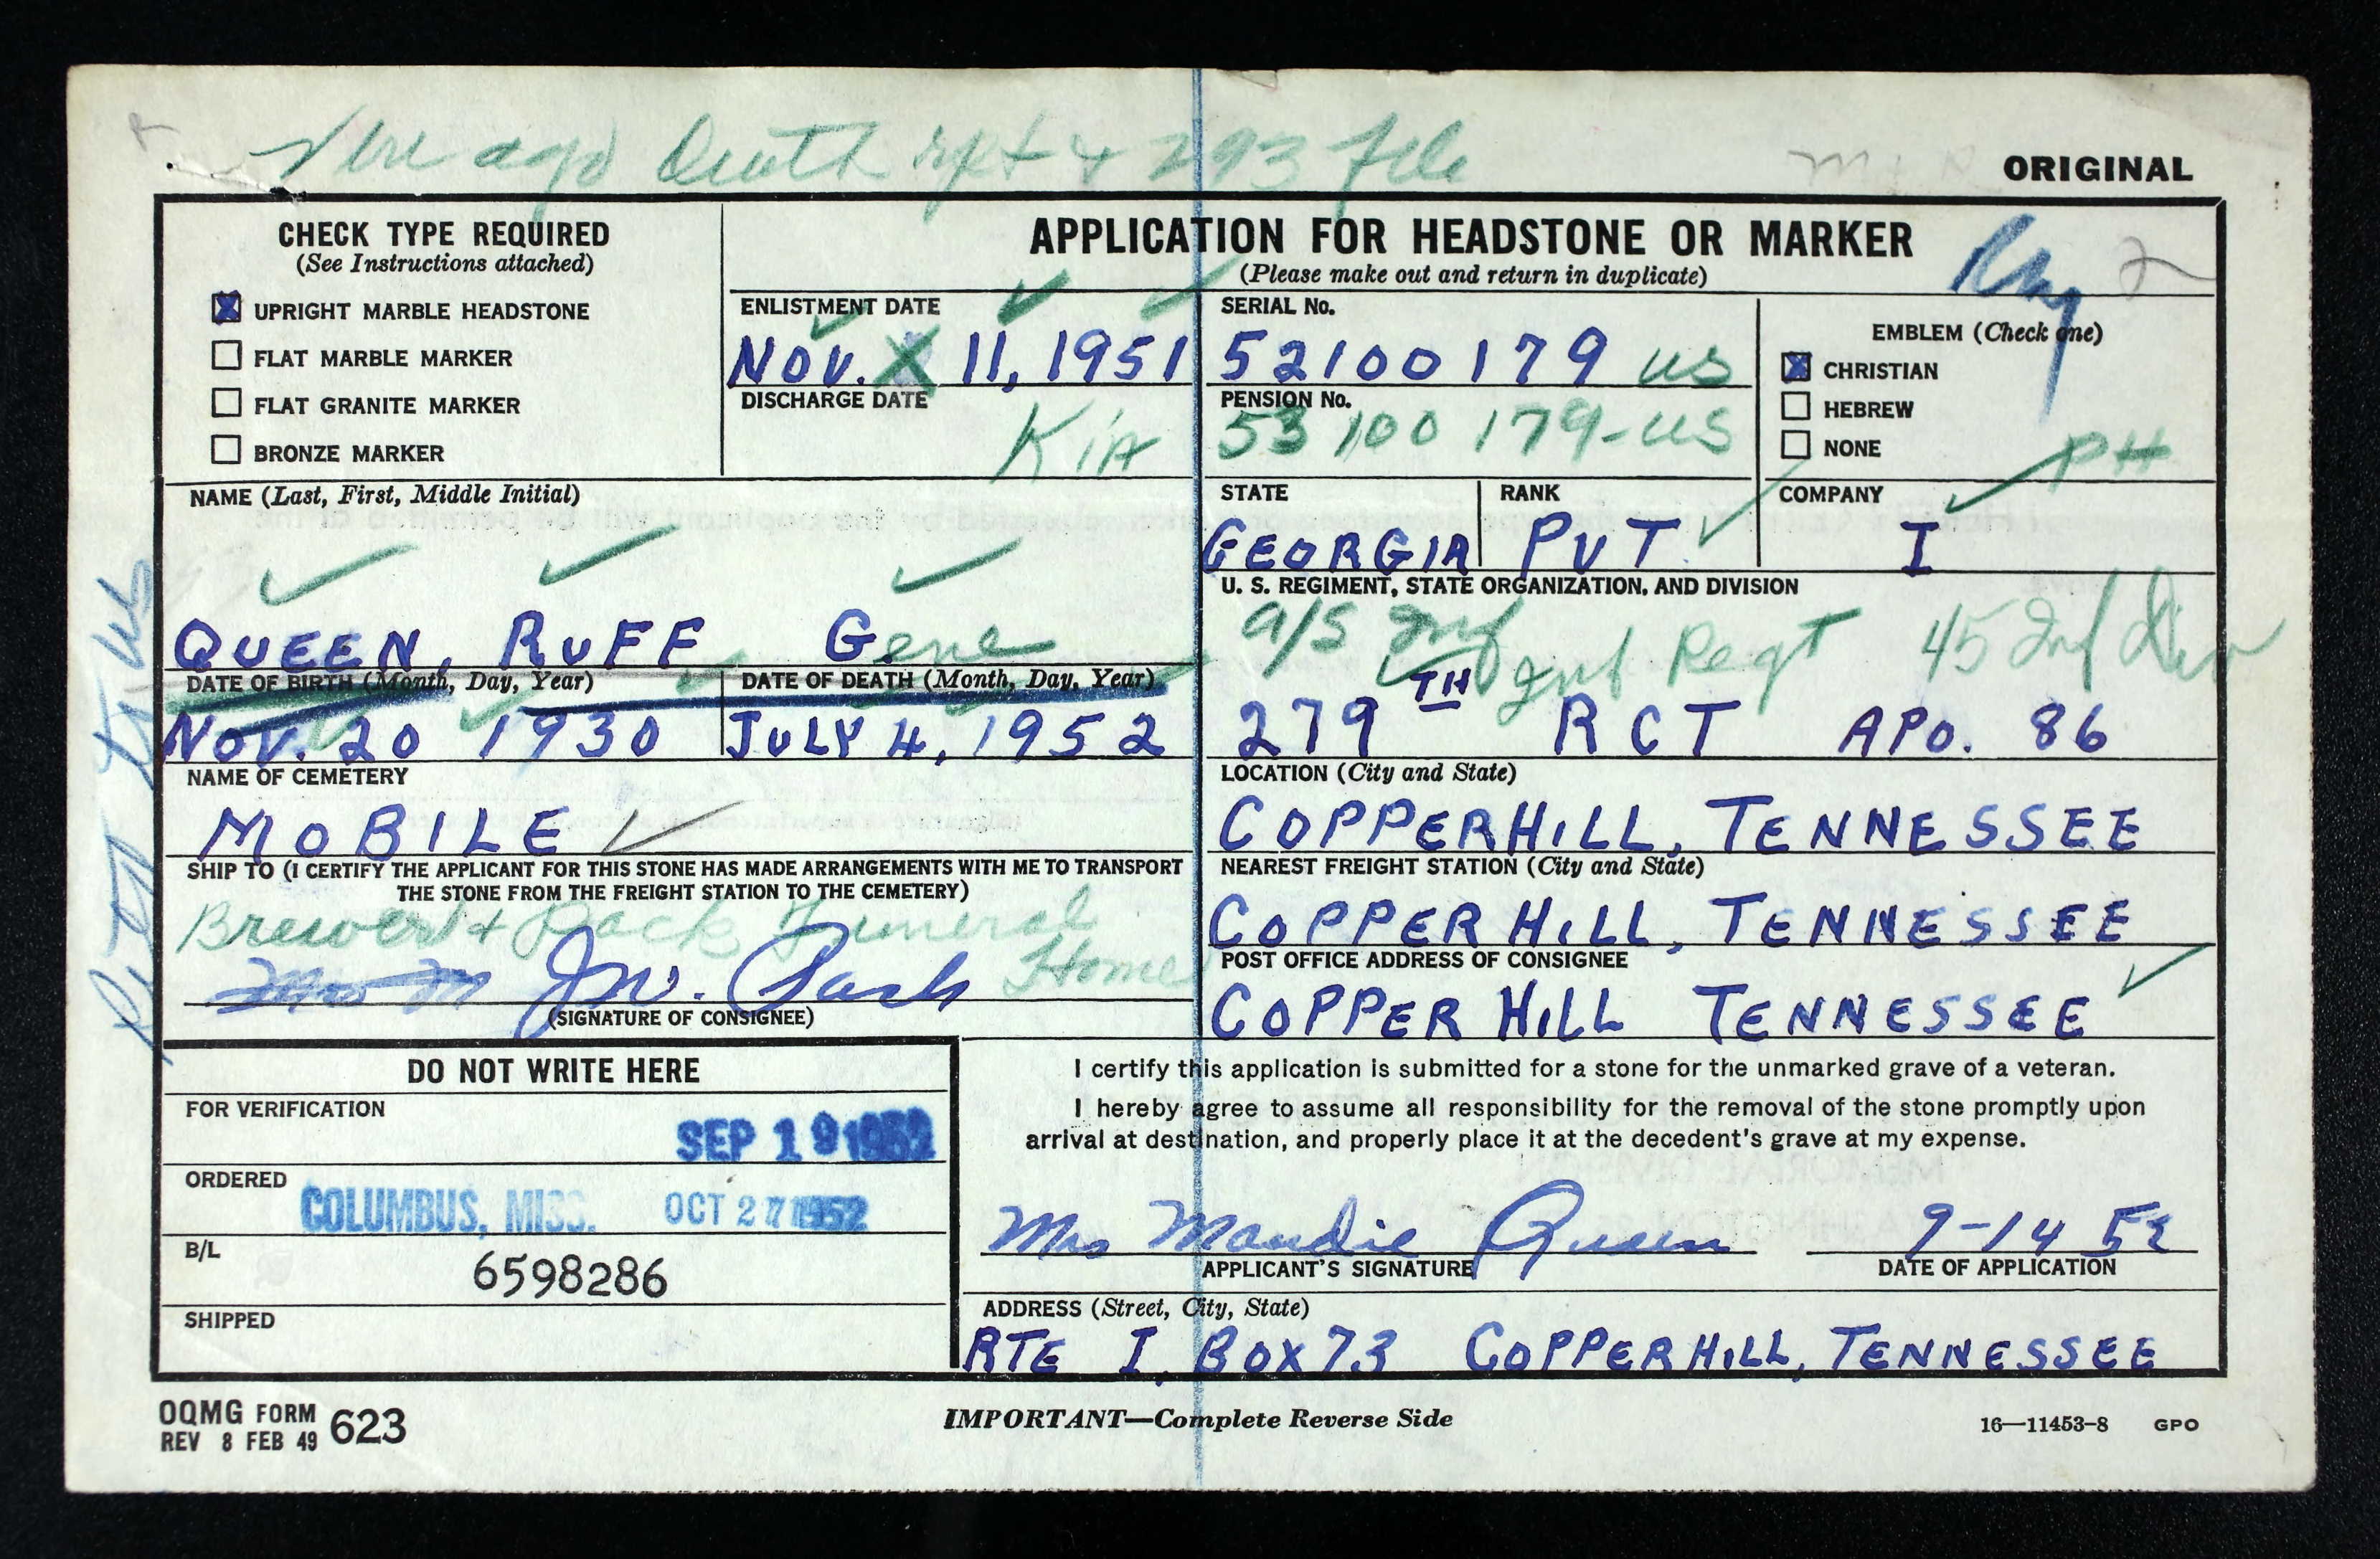 Death rpt + 293 file
ORIGINAL
CHECK TYPE REQUIRED
(See Instructions attached)
X UPRIGHT MARBLE HEADSTONE
FLAT MARBLE MARKER
FLAT GRANITE MARKER
BRONZE MARKER
APPLICATION FOR HEADSTONE OR MARKER
(Please make out and return in duplicate)
2
ENLISTMENT DATE
NOV. X 11, 1951
DISCHARGE DATE
KIA
SERIAL No.
52100179 US
PENSION No.
53 100 179-US
EMBLEM (Check one)
X CHRISTIAN
HEBREW
NONE
PH
NAME (Last, First, Middle Initial)
QUEEN, RUFF Gene
STATE
GEORGIA
RANK
PVT
COMPANY
I
U. S. REGIMENT, STATE ORGANIZATION, AND DIVISION
a/s Inf Regt 45 Inf Div
279TH RCT APO. 86
DATE OF BIRTH (Month, Day, Year)
NOV. 20 1930
DATE OF DEATH (Month, Day, Year)
JULY 4, 1952
NAME OF CEMETERY
MOBILE
LOCATION (City and State)
COPPERHILL, TENNESSEE
SHIP TO (I CERTIFY THE APPLICANT FOR THIS STONE HAS MADE ARRANGEMENTS WITH ME TO TRANSPORT
THE STONE FROM THE FREIGHT STATION TO THE CEMETERY)
Brewer + Pack Funeral
Home
J.W. Pack
(SIGNATURE OF CONSIGNEE)
NEAREST FREIGHT STATION (City and State)
COPPER HILL, TENNESSEE
POST OFFICE ADDRESS OF CONSIGNEE
COPPER HILL TENNESSEE
DO NOT WRITE HERE
FOR VERIFICATION
SEP 19 1952
ORDERED
COLUMBUS, MISS. OCT 27 1952
B/L
6598286
SHIPPED
I certify this application is submitted for a stone for the unmarked grave of a veteran.
I hereby agree to assume all responsibility for the removal of the stone promptly upon
arrival at destination, and properly place it at the decedent's grave at my expense.
Mrs Maudie Queen 9-14 52
APPLICANT'S SIGNATURE DATE OF APPLICATION
ADDRESS (Street, City, State)
RTE I, BOX 73 COPPERHILL, TENNESSEE
OQMG FORM 623
REV 8 FEB 49
IMPORTANT—Complete Reverse Side
16—11453-8 GPO